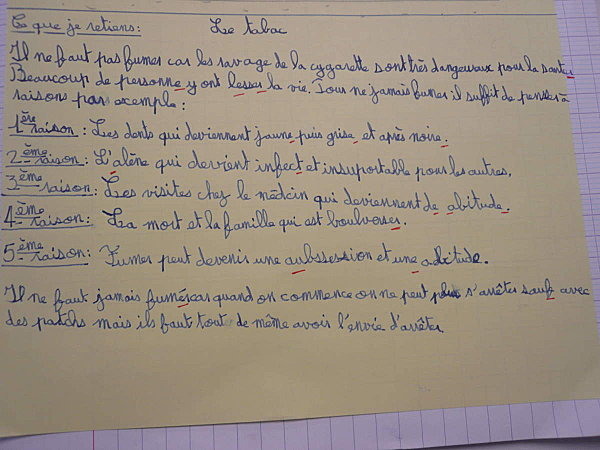 Ce que je retiens: Le tabac
Il ne faut pas fumer car les ravage de la cygarette sont très dangeureux pour la santer
Beaucoup de personne y ont lesser la vie. Pour ne jamais fumer il suffit de penser à
raisons par exemple:
1ère raison: Les dents qui deviennent jaune puis grise et après noire.
2ème raison: L'alène qui devient infect et insuportable pour les autres.
3ème raison: Les visites chez le médcin qui deviennent de abitude.
4ème raison: La mort et la famille qui est boulverser.
5ème raison: Fumer peut devenir une aubssession et une abitude.
Il ne faut jamais fumés car quand on commence on ne peut plus s'arrêter saufe avec
des patchs mais ils faut tout de même avoir l'envie d'arrêter